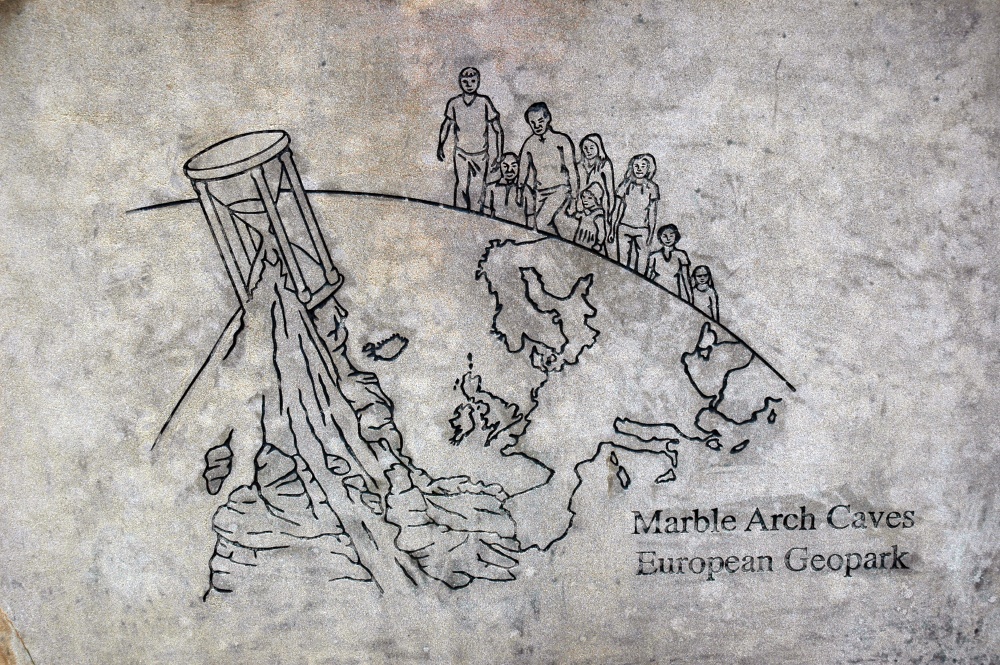 Marble Arch Caves
European Geopark